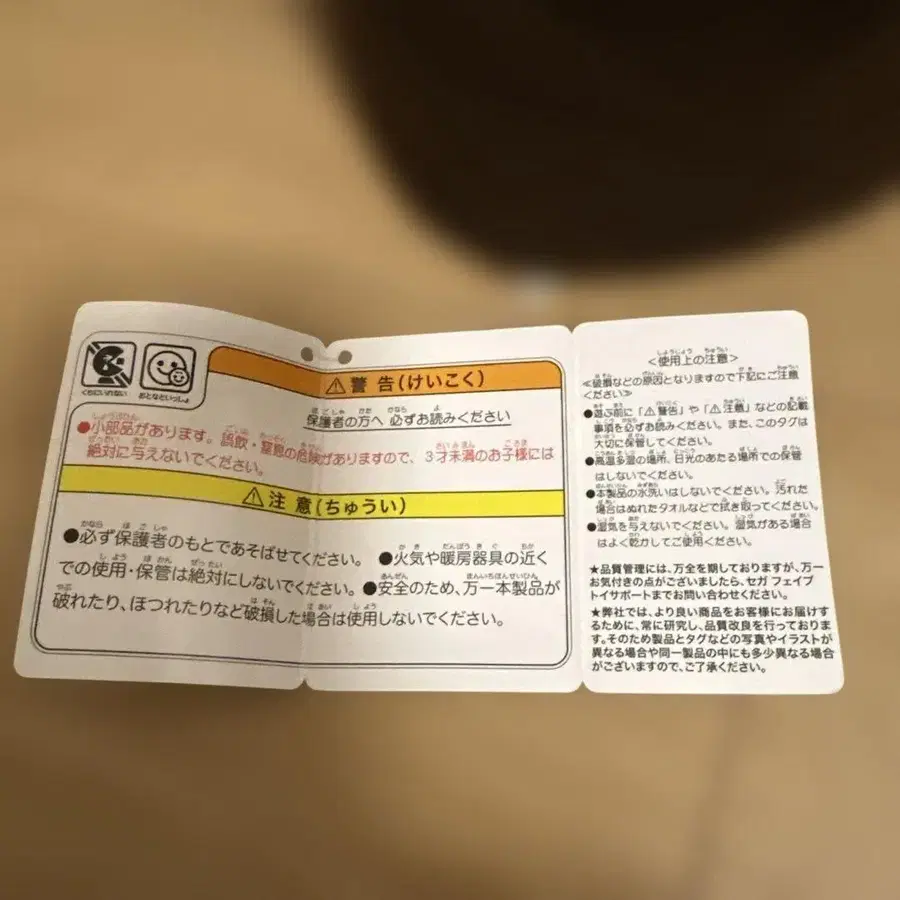 くちにいれない
おとなといっしょ
⚠警告(けいこく)
保護者の方へ 必ずお読みください
●小部品があります。誤飲・窒息の危険がありますので、3才未満のお子様には
絶対に与えないでください。
⚠注意(ちゅうい)
●必ず保護者のもとであそばせてください。 ●火気や暖房器具の近く
での使用・保管は絶対にしないでください。●安全のため、万一本製品が
破れたり、ほつれたりなど破損した場合は使用しないでください。
<使用上の注意>
≪破損などの原因となりますので下記にご注意
ください≫
●遊ぶ前に「⚠警告」や「⚠注意」などの記載
事項を必ずお読みください。また、このタグは
大切に保管してください。
●高温多湿の場所、日光のあたる場所での保管
はしないでください。
●本製品の水洗いはしないでください。汚れた
場合はぬれたタオルなどで拭き取ってください。
●湿気を与えないでください。湿気がある場合
はよく乾かしてご使用ください。
★品質管理には、万全を期しておりますが、万一
お気付きの点がございましたら、セガ フェイブ
トイサポートまでお問い合わせください。
★弊社では、より良い商品をお客様にお届けする
ために、常に研究し、品質改良を行っておりま
す。そのため製品とタグなどの写真やイラストが
異なる場合や同一製品の中にも多少異なる場合
がございますので、ご了承ください。